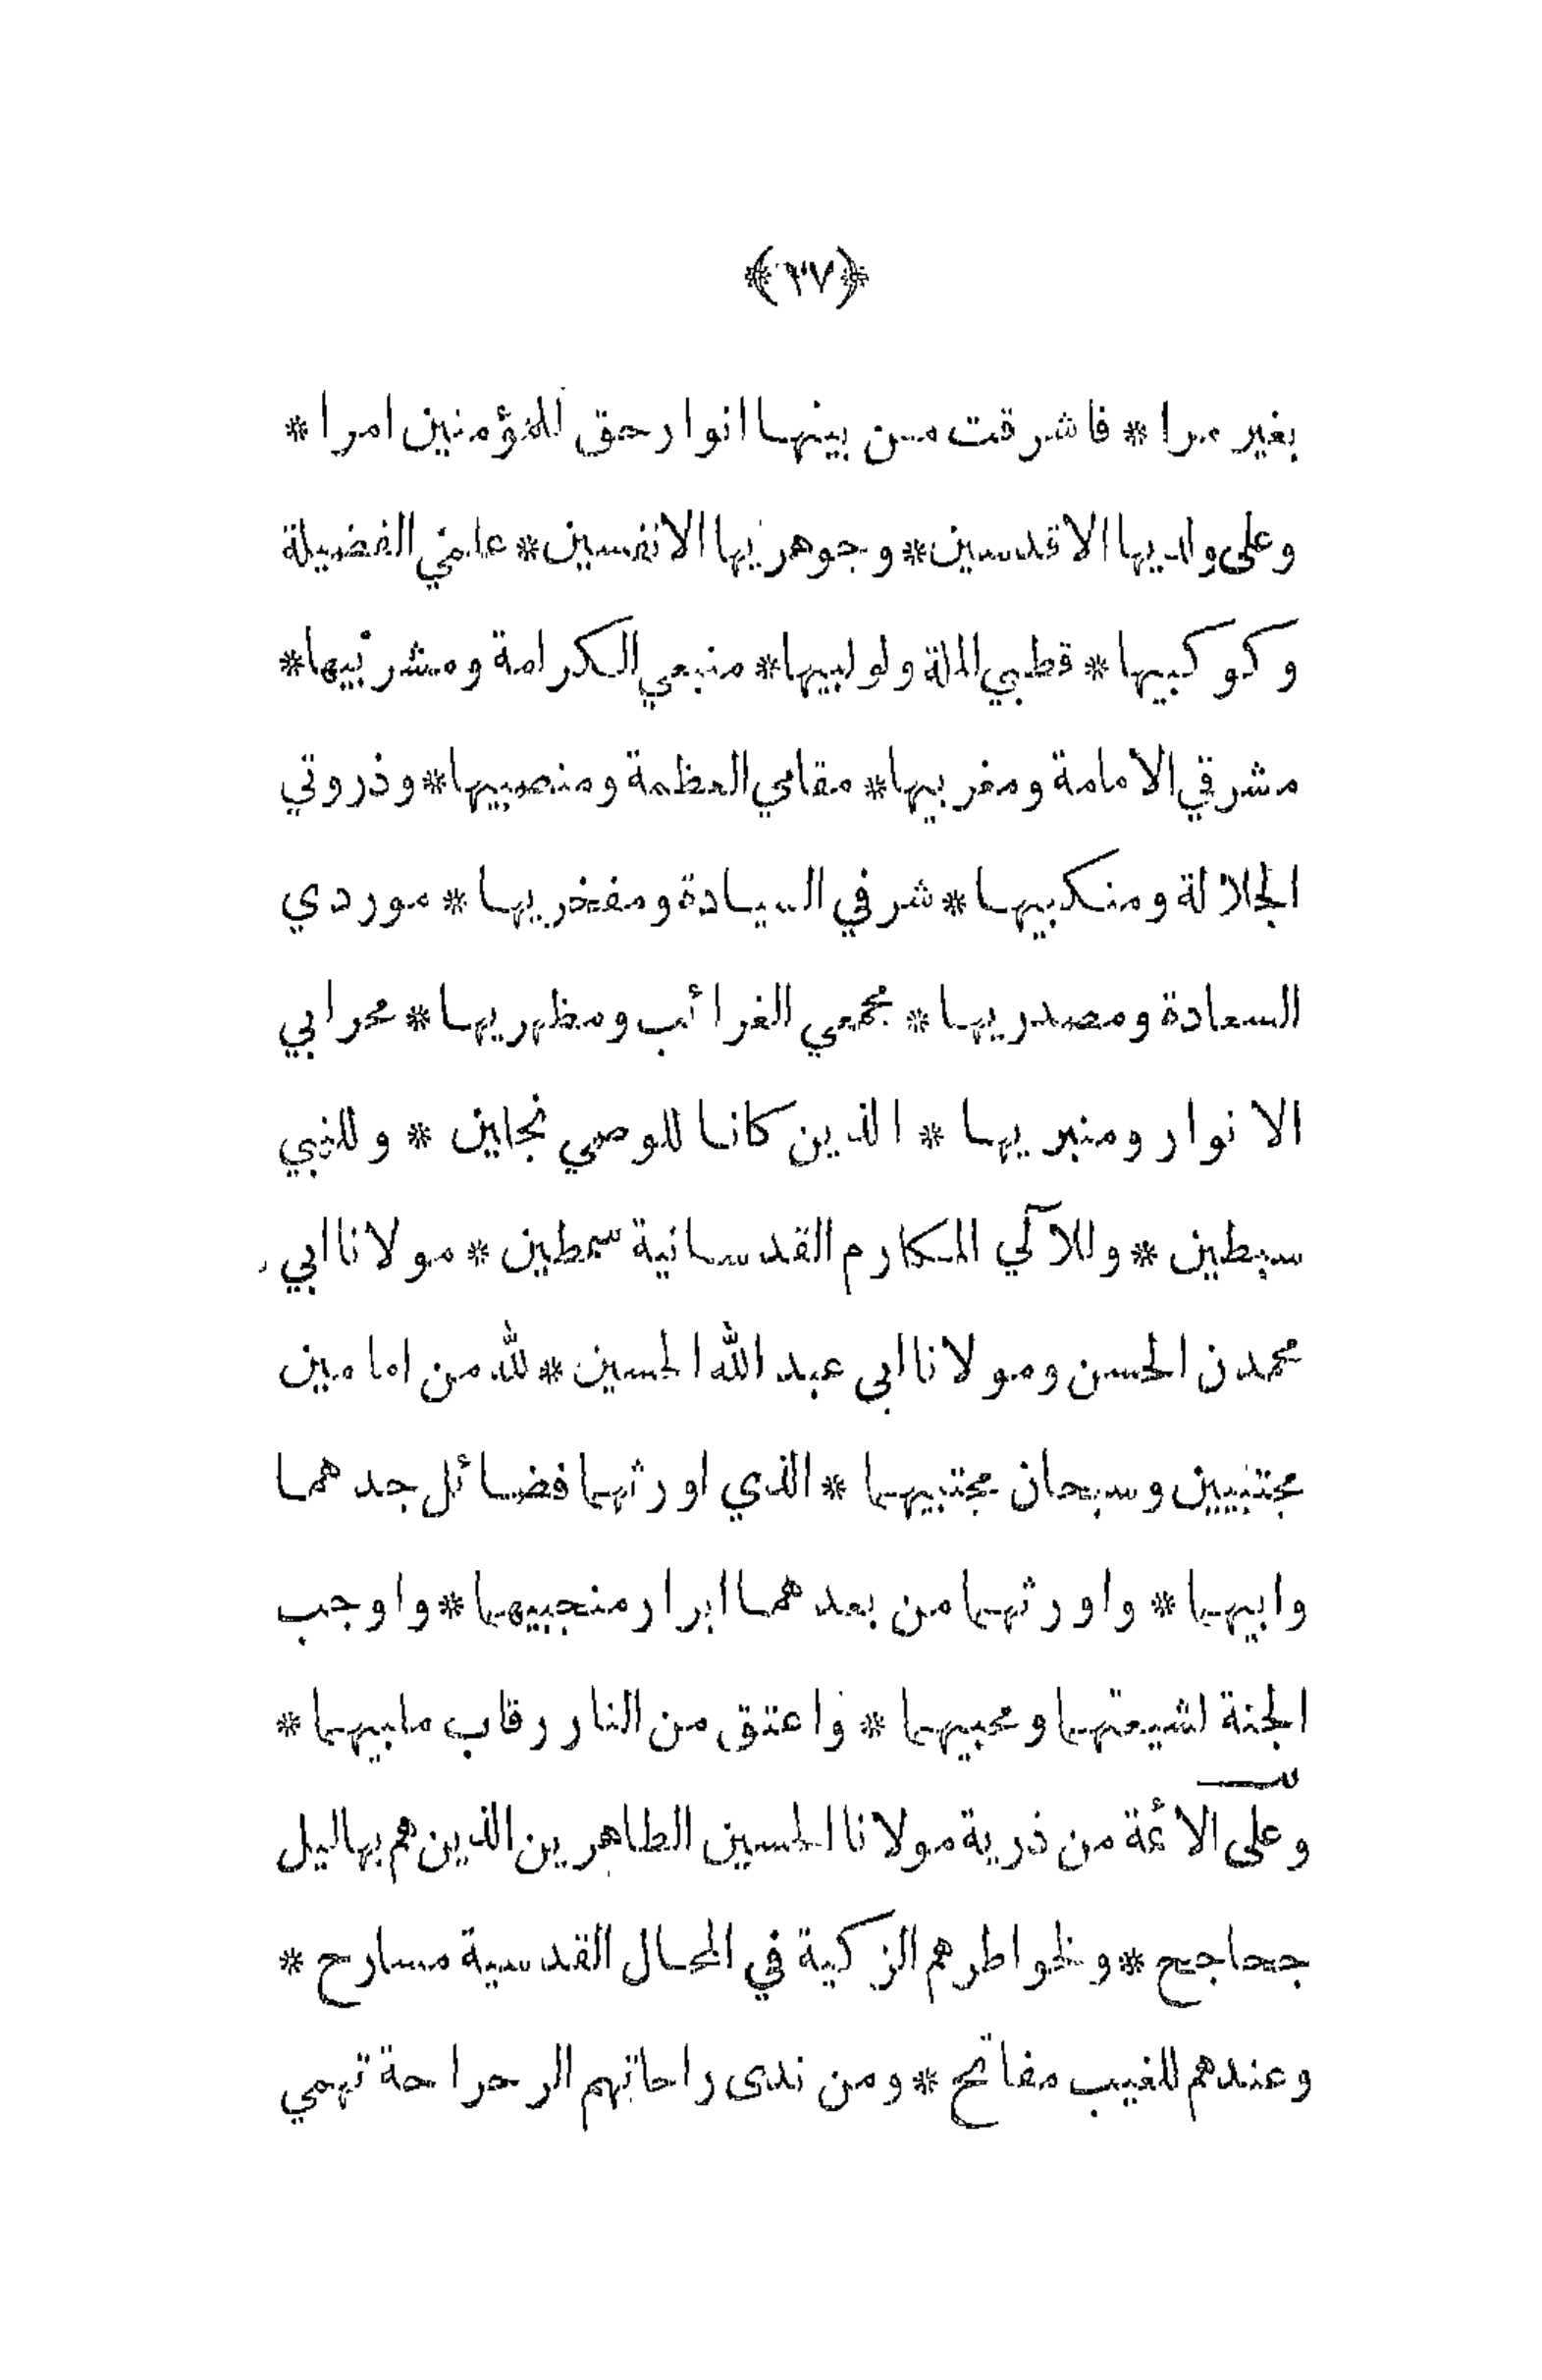 ﴿٣٧﴾
بغير مرا * فاشرقت من بينها انوار حق للمؤمنين امرا *
وعلى ولديها الاقدسين * وجوهريها الانفسين * علمي الفضيلة
وكوكبيها * قطبي الملة ولولبيها * منبعي الكرامة ومشربيها *
مشرقي الامامة ومغربيها * مقامي العظمة ومنصبيها * وذروتي
الجلالة ومنكبيها * شرفي السيادة ومفخريها * موردي
السعادة ومصدريها * مجمعي الغرائب ومظهريها * محرابي
الانوار ومنبريها * الذين كانا للوصي نجلين * وللنبي
سبطين * وللآلي المكارم القدسانية سمطين * مولانا ابي
محمدن الحسن ومولانا ابى عبد الله الحسين * لله من امامين
مجتبيين وسبحان مجتبيهما * الذي اورثهما فضائل جدهما
وابيهما * واورثهما من بعدهما ابرار منجبيهما * واوجب
الجنة لشيعتهما ومحبيهما * واعتق من النار رقاب ملبيهما *
وعلى الائمة من ذرية مولانا الحسين الطاهرين الذين هم بهاليل
جحاجيح * ولخواطرهم الزكية في المحال القدسية مسارح *
وعندهم للغيب مفاتح * ومن ندى راحاتهم الرحراحة تهمي